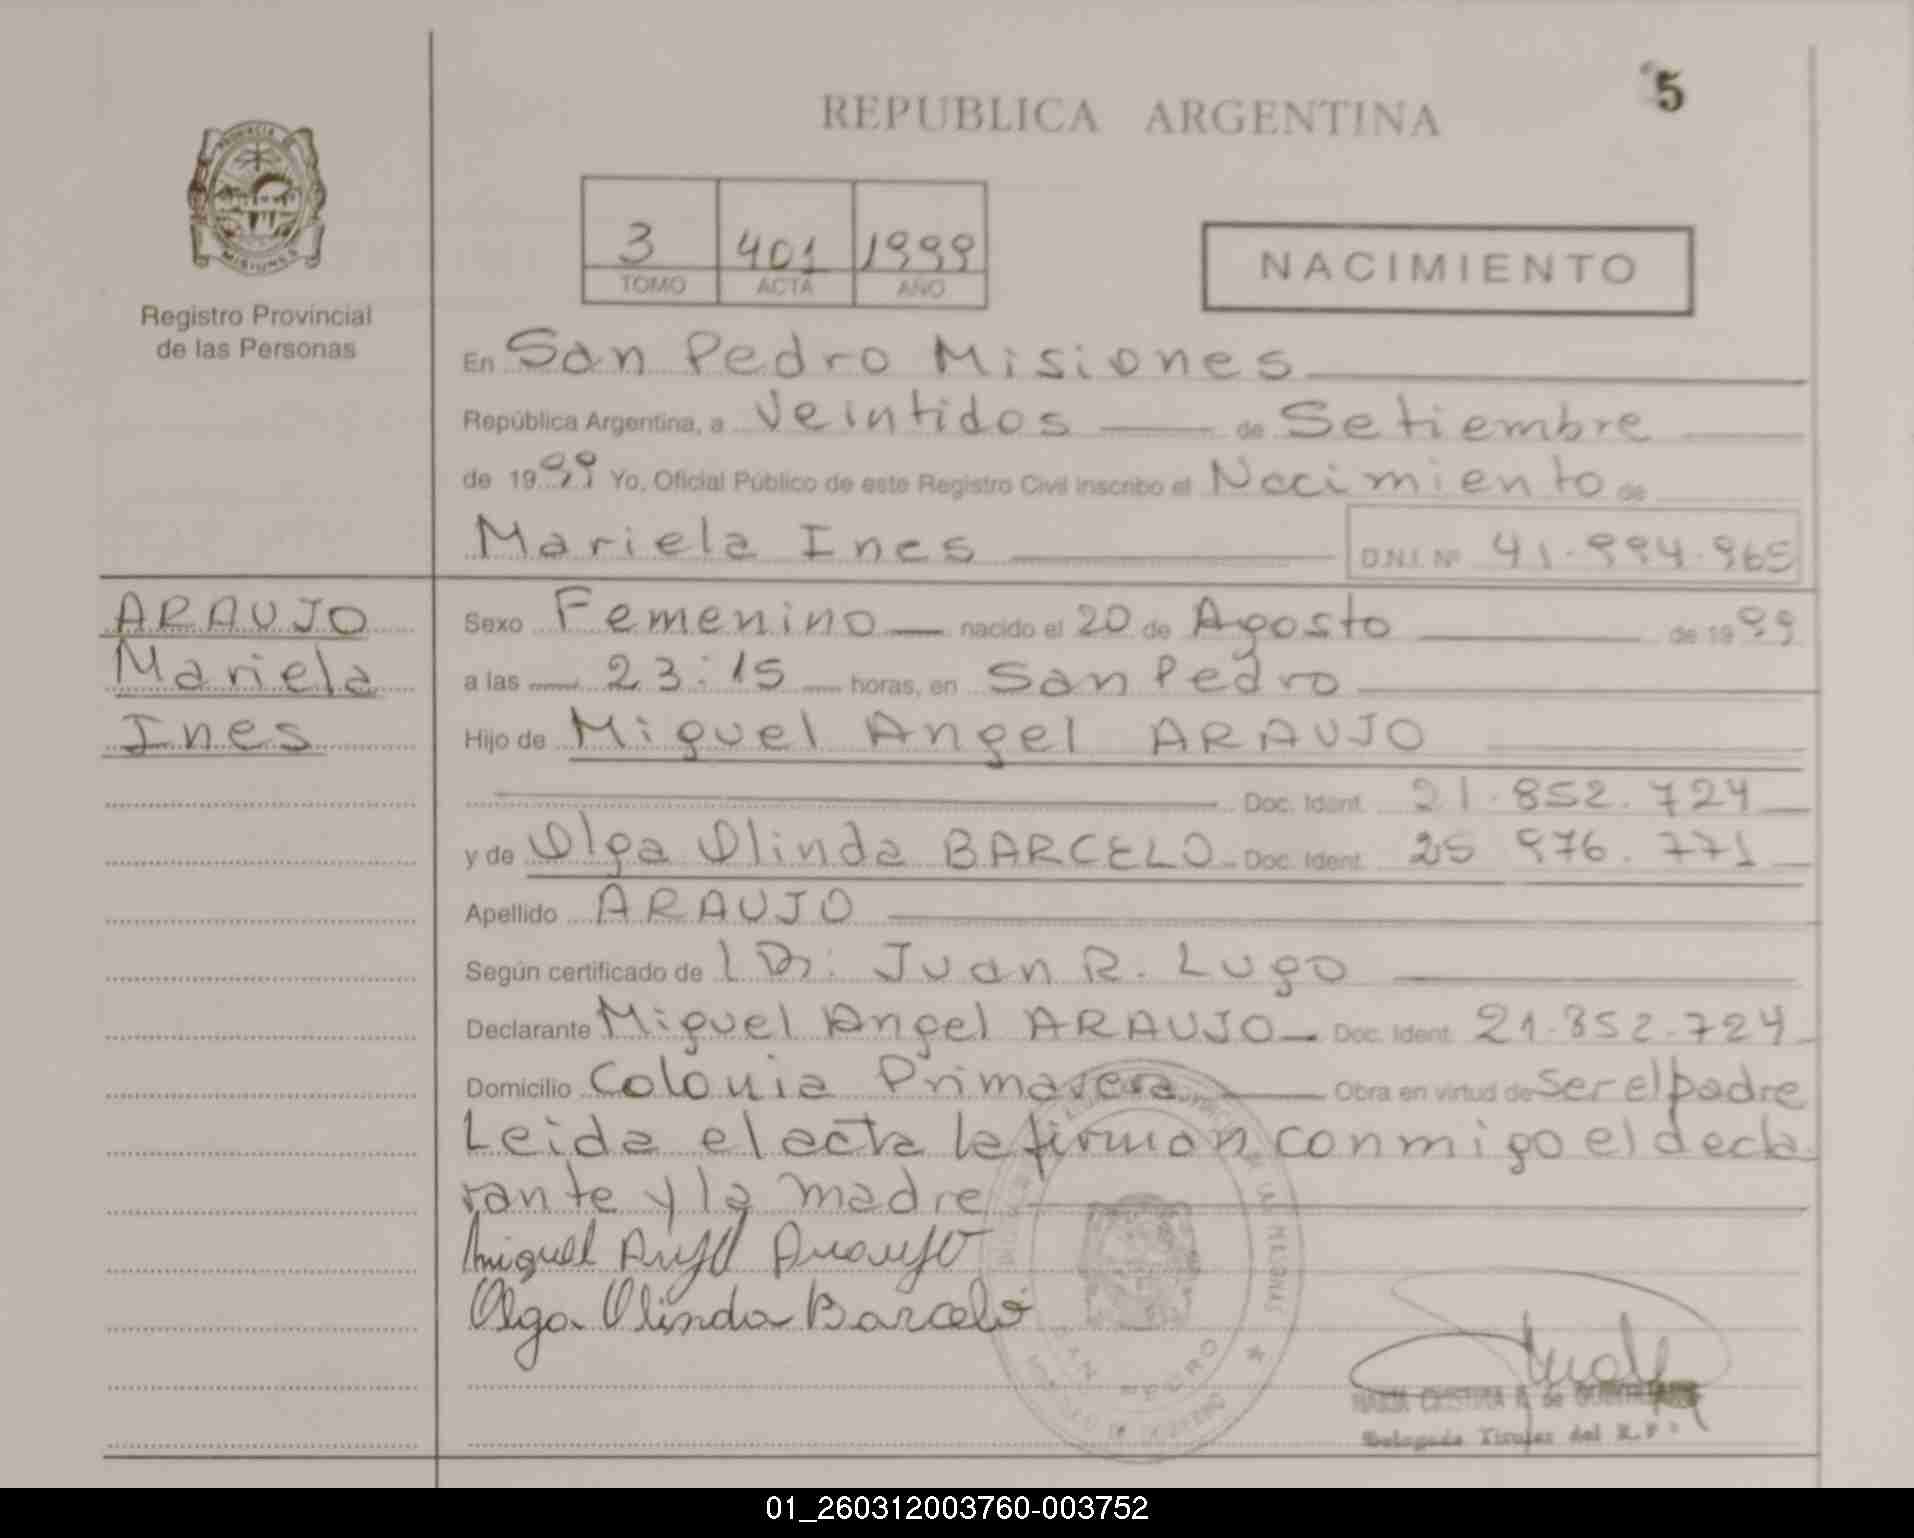 5
REPUBLICA ARGENTINA
3 401 1999
TOMO ACTA AÑO
NACIMIENTO
MISIONES
Registro Provincial
de las Personas
En San Pedro Misiones
República Argentina, a Veintidos de Setiembre
de 1999 Yo, Oficial Público de este Registro Civil inscribo el Nacimiento de
Mariela Ines D.N.I. Nº 41.994.965
ARAUJO
Mariela
Ines
Sexo Femenino nacido el 20 de Agosto de 1999
a las 23:15 horas, en San Pedro
Hijo de Miguel Angel ARAUJO
Doc. Ident. 21.852.724
y de Olga Olinda BARCELO Doc. Ident. 25 976.771
Apellido ARAUJO
Según certificado de Dr. Juan R. Lugo
Declarante Miguel Angel ARAUJO Doc. Ident. 21.852.724
Domicilio Colonia Primavera Obra en virtud de ser el padre
Leida el acta la firman conmigo el decla
rante y la madre
Miguel Angel Araujo
Olga Olinda Barceló
SAN PEDRO
MARIA CRISTINA R. de
Delegada Titular del R.P.
01_260312003760-003752